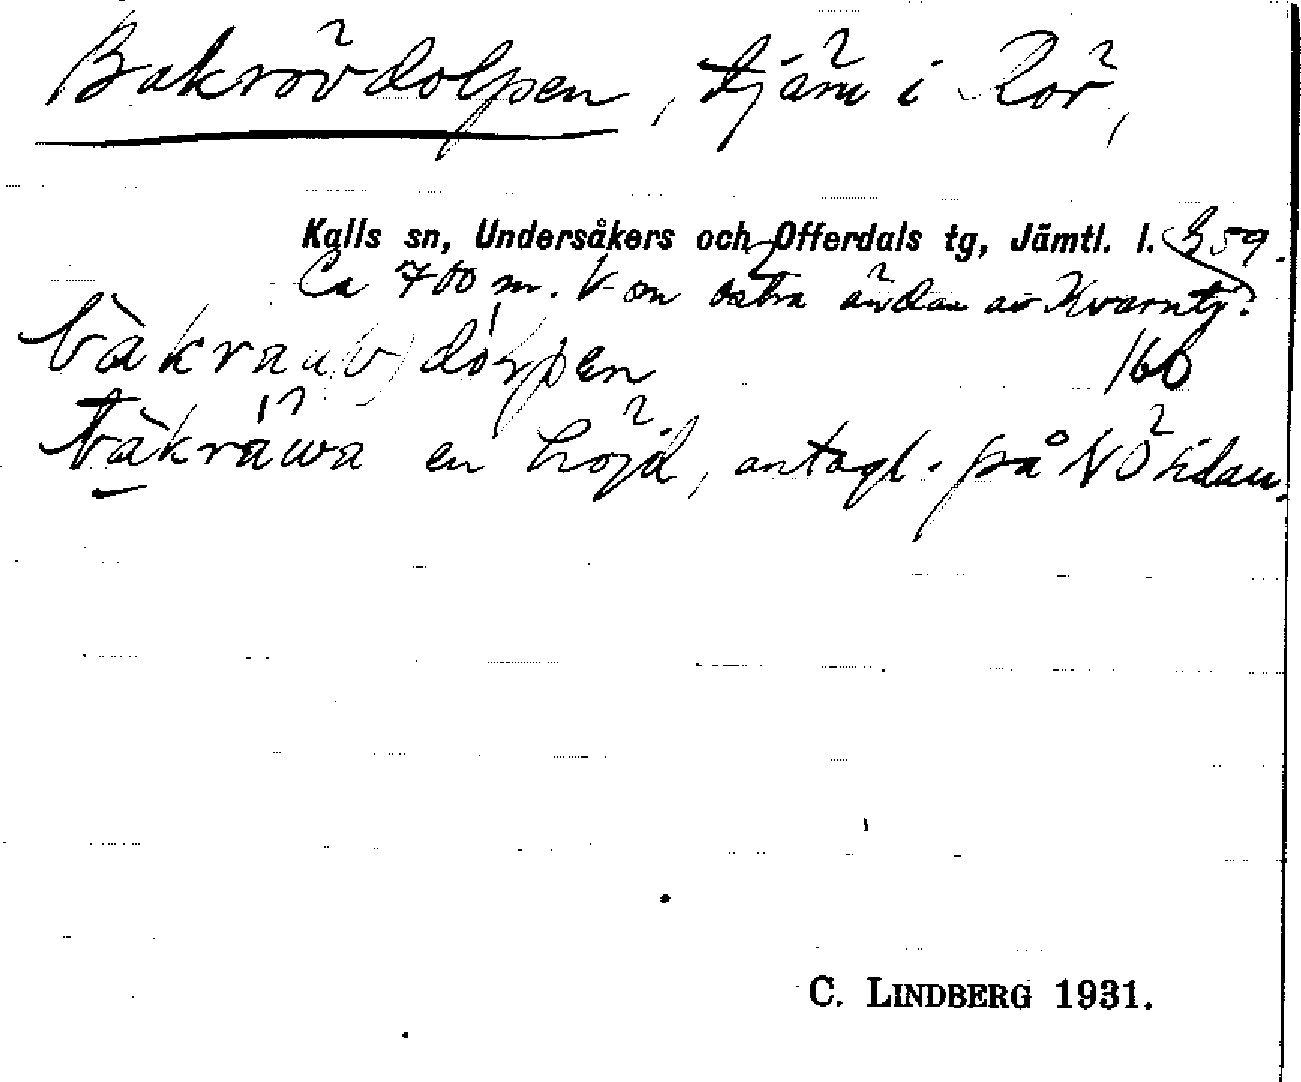 Bakrövdolpen, tjärn i Rör,
Kalls sn, Undersåkers och Offerdals tg, Jämtl. l. B 59.
Ca 700 m. V om östra ändan av Kvarntj.
bàkrauv)dóɽpen 160
bàkräuva en höjd, antagl. på NÖ sidan.
C. LINDBERG 1931.